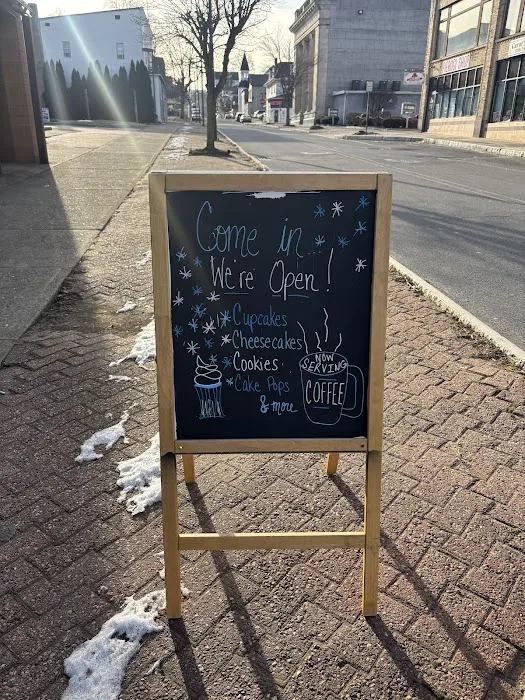 Come in...
We're Open!
*Cupcakes
*Cheesecakes
*Cookies
*Cake Pops
& more
NOW
SERVING
COFFEE